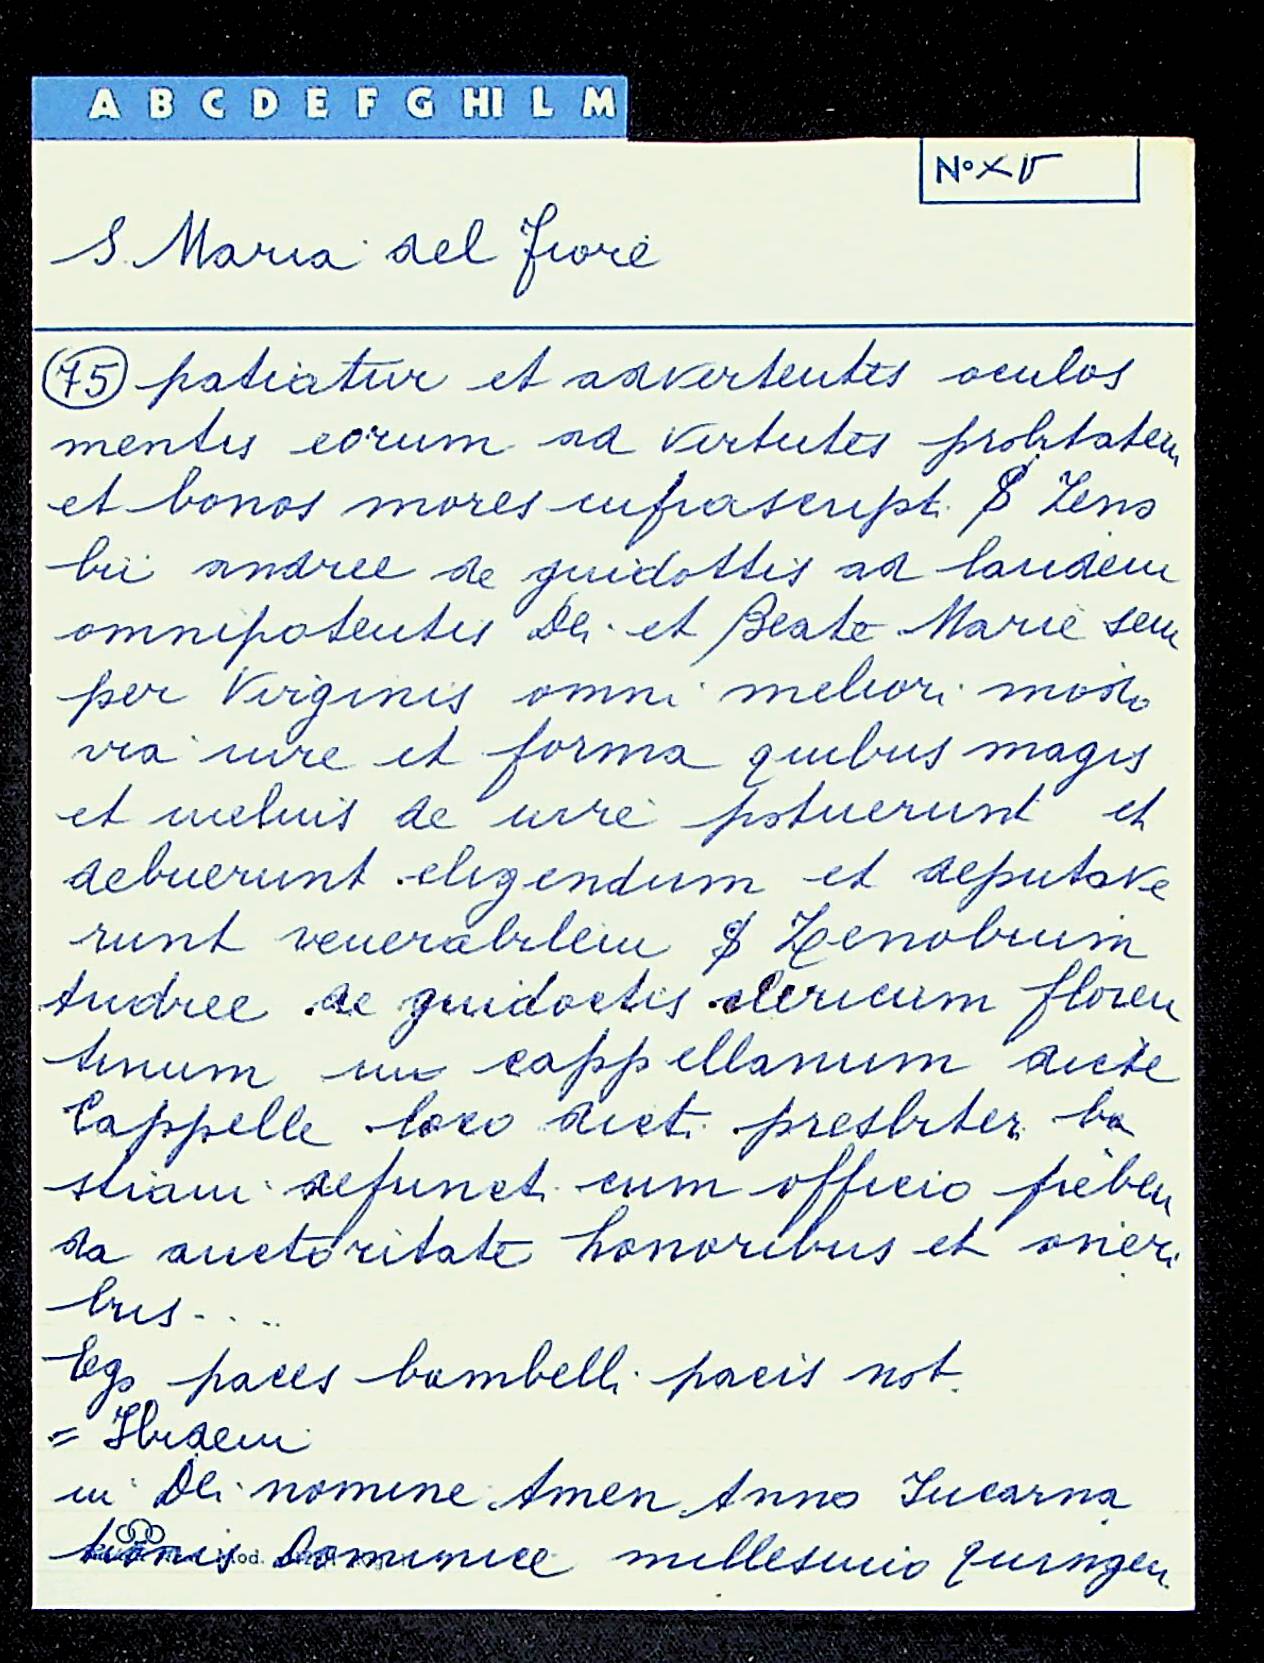 A B C D E F G HI L M
N° XV
S. Maria del Fiore
(75) patiatur et advertentes oculos
mentis eorum ad virtutes probitatem
et bonos mores infrascript. $ Zeno
bii andree de guidottis ad laudem
omnipotentis Dei et Beate Marie sem
per Virginis omni meliori modo
via iure et forma quibus magis
et melius de iure potuerunt et
debuerunt eligendum et deputave
runt venerabilem $ Zenobium
Andree de guidoctis clericum floren
tinum in cappellanum dicte
Cappelle loco dicti presbiter ba
stiani defunct. cum officio preben
da auctoritate honoribus et oneri
bus....
Ego paces bambelli pacis not.
= Ibidem
in Dei nomine Amen Anno Incarna
tionis Dominice millesimo quingen